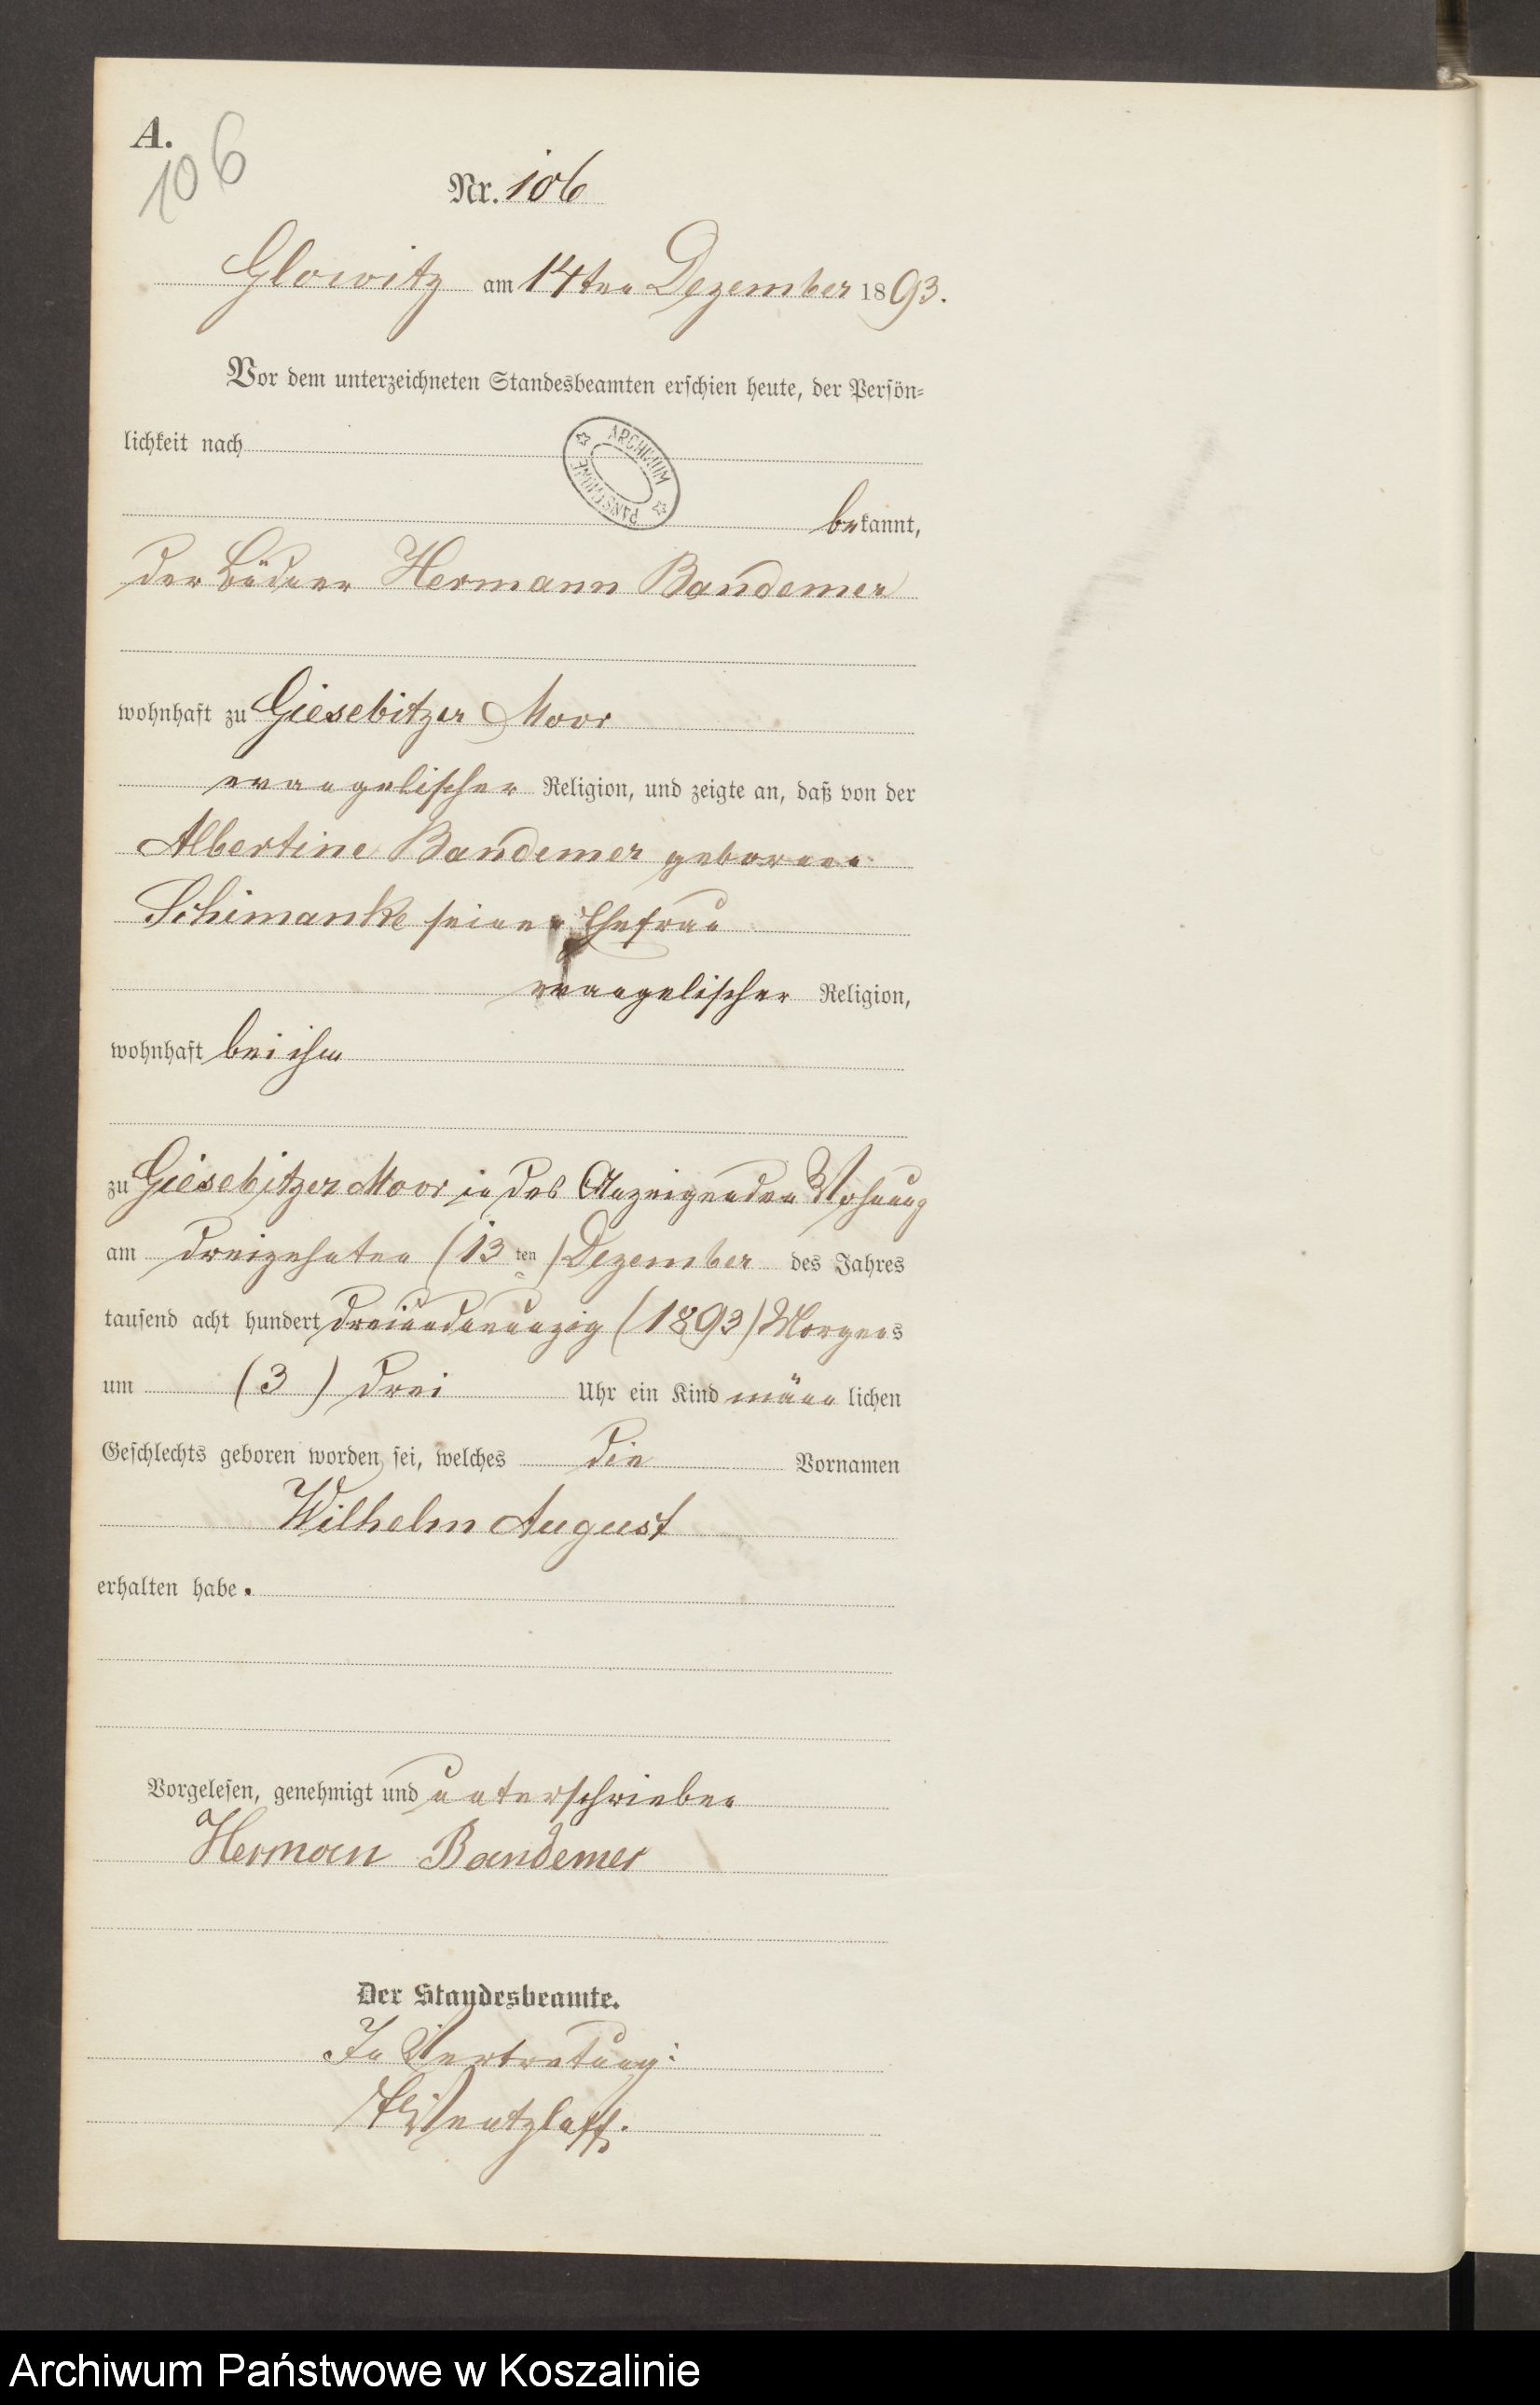 A.
106
Nr. 106
Glowitz am 14ten Dezember 1893.
Vor dem unterzeichneten Standesbeamten erschien heute, der Persön-
lichkeit nach
ARCHIWUM PAŃSTWOWE
bekannt,
der Büdner Hermann Bandemer
wohnhaft zu Giesebitzer Moor
evangelischer Religion, und zeigte an, daß von der
Albertine Bandemer geborene
Schimanke seiner Ehefrau
evangelischer Religion,
wohnhaft bei ihm
zu Giesebitzer Moor in des Anzeigenden Wohnung
am dreizehnten (13 ten) Dezember des Jahres
tausend acht hundert dreiundneunzig (1893) Morgens
um (3) drei Uhr ein Kind männlichen
Geschlechts geboren worden sei, welches die Vornamen
Wilhelm August
erhalten habe.
Vorgelesen, genehmigt und unterschrieben
Herman Bandemer
Der Standesbeamte.
In Vertretung:
Wentzlaff.
Archiwum Państwowe w Koszalinie